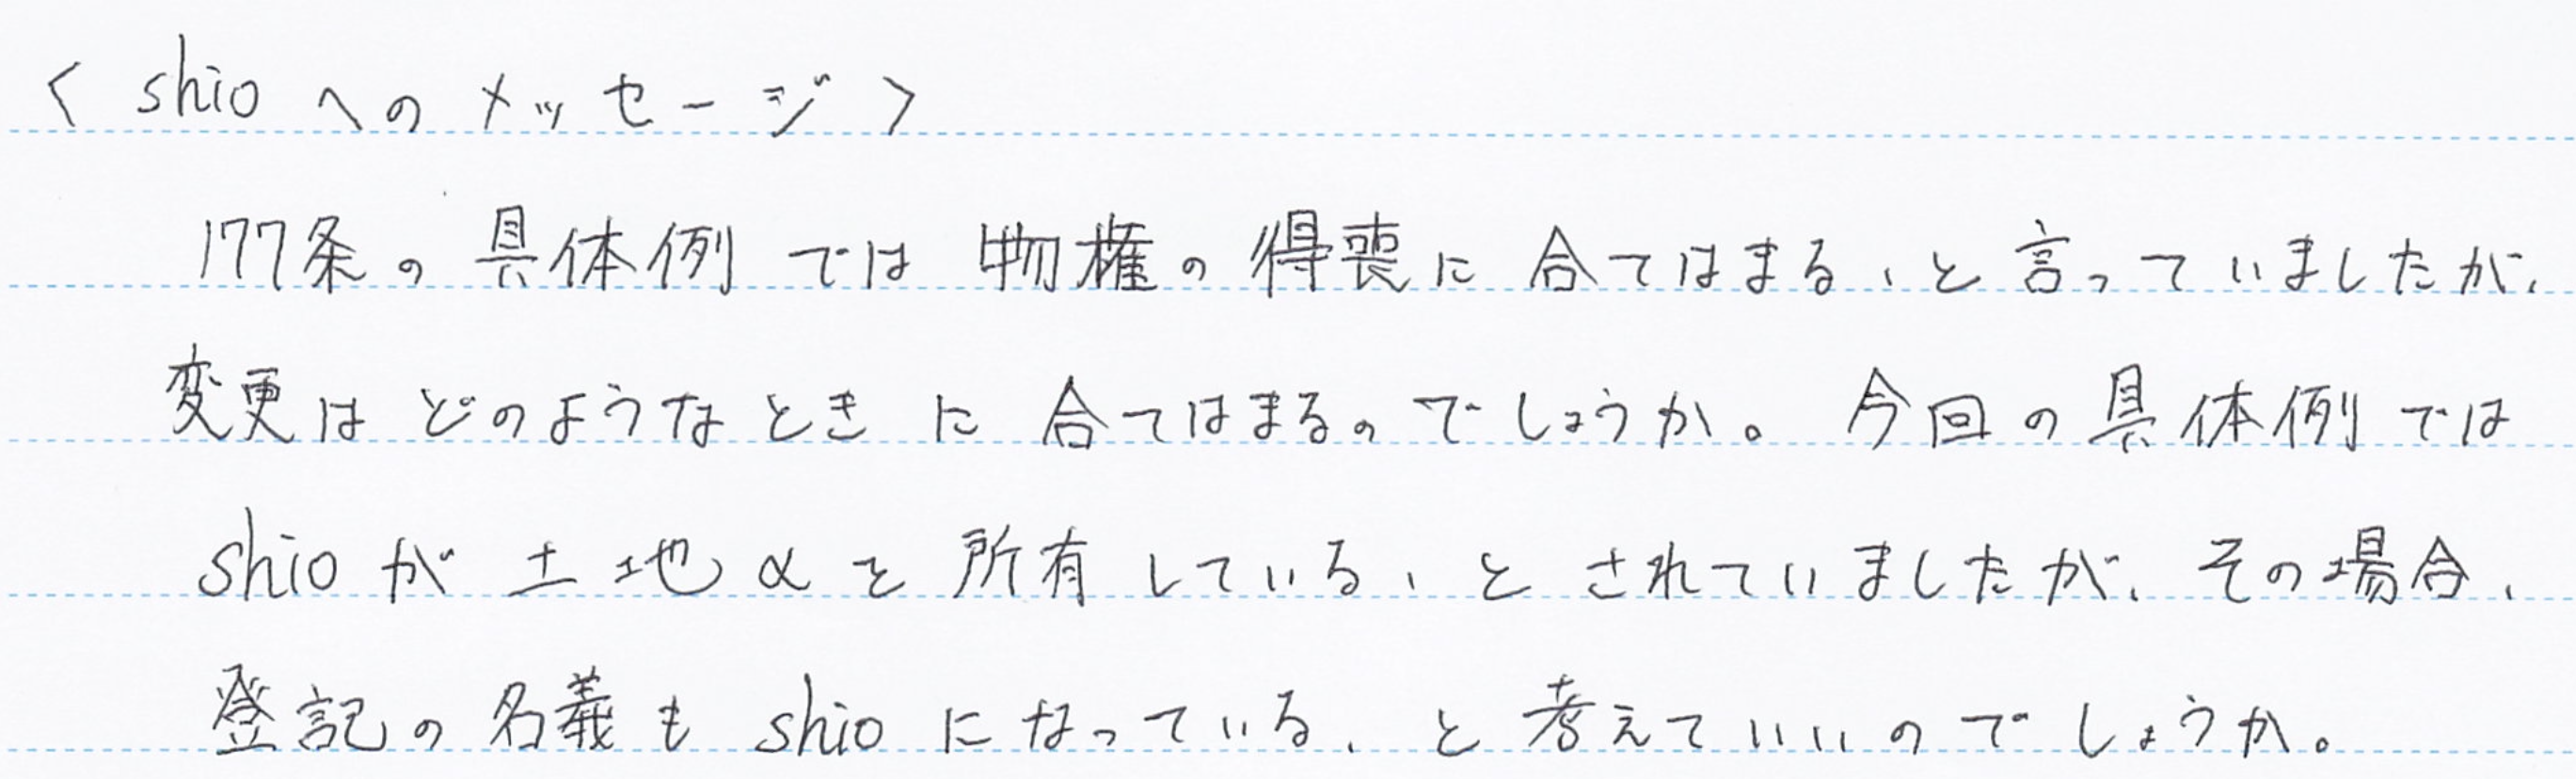 < shioへのメッセージ >
177条の具体例では物権の得喪に合てはまる、と言っていましたが、
変更はどのようなときに合てはまるのでしょうか。今回の具体例では
shioが土地αを所有している、とされていましたが、その場合、
登記の名義もshioになっている、と考えていいのでしょうか。